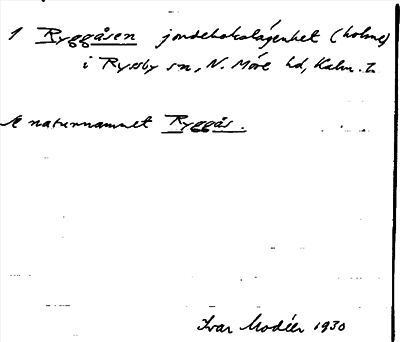 1 Ryggåsen jordebokslägenhet (holme)
i Ryssby sn, N. Möre hd, Kalm. l.
naturnamnet Ryggås.
Ivar Modéer 1930